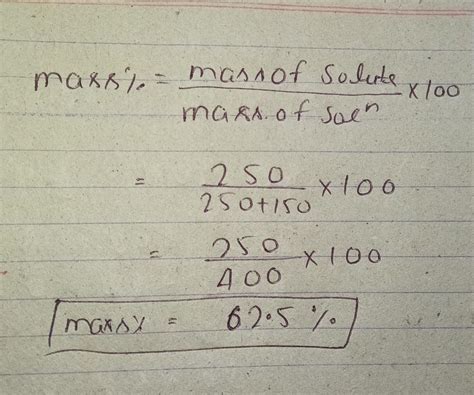 mass% = mass of solute / mass of solⁿ × 100
= 250 / 250+150 × 100
= 250 / 400 × 100
mass% = 62.5 %